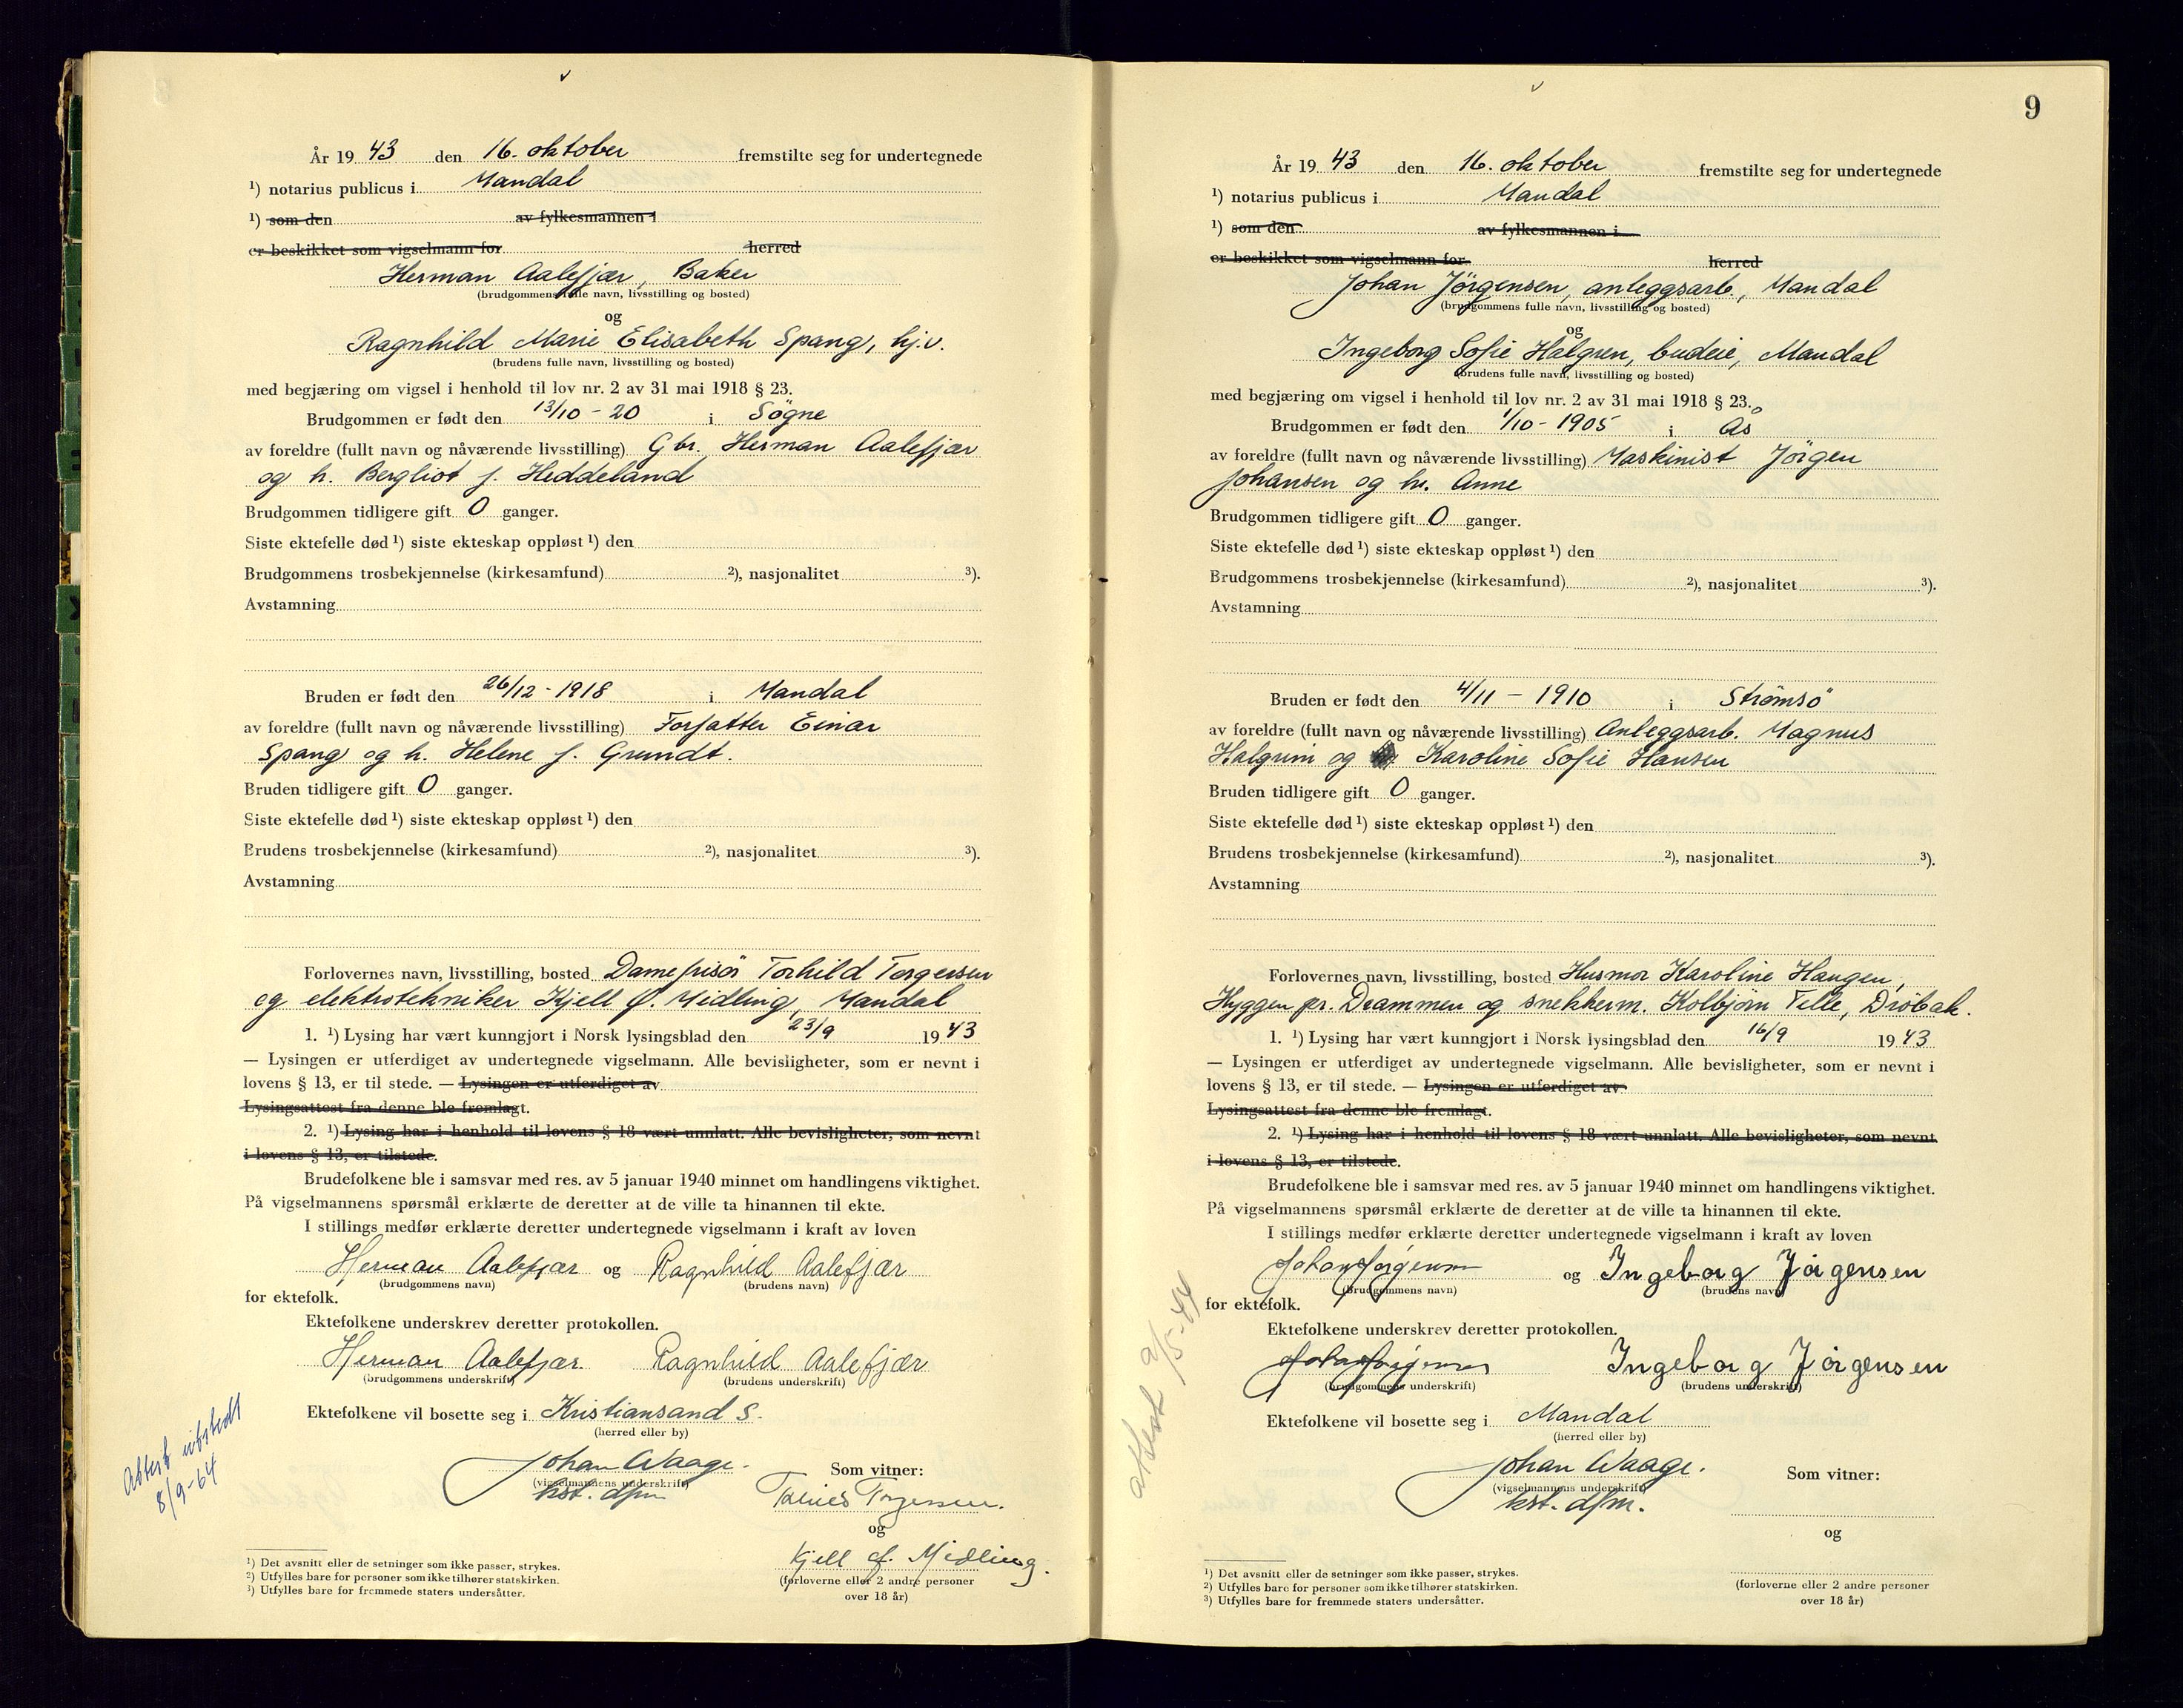 År 19 43 den 16. oktober fremstilte seg for undertegnede
¹) notarius publicus i Mandal
¹) som den av fylkesmannen i
er beskikket som vigselmann for herred
Herman Aalefjær, Baker
(brudgommens fulle navn, livsstilling og bosted)
og
Ragnhild Marie Elisabeth Spang, hj.v.
(brudens fulle navn, livsstilling og bosted)
med begjæring om vigsel i henhold til lov nr. 2 av 31 mai 1918 § 23.
Brudgommen er født den 13/10 - 20 i Sögne
av foreldre (fullt navn og nåværende livsstilling) Gbr. Herman Aalefjær
og h. Bergliot f. Heddeland
Brudgommen tidligere gift 0 ganger.
Siste ektefelle død ¹) siste ekteskap oppløst ¹) den
Brudgommens trosbekjennelse (kirkesamfund) ²), nasjonalitet ³).
Avstamning
Bruden er født den 26/12 - 1918 i Mandal
av foreldre (fullt navn og nåværende livsstilling) Forfatter Einar
Spang og h. Helene f. Grundt.
Bruden tidligere gift 0 ganger.
Siste ektefelle død ¹) siste ekteskap oppløst ¹) den
Brudens trosbekjennelse (kirkesamfund) ²), nasjonalitet ³).
Avstamning
Forlovernes navn, livsstilling, bosted Damefrisör Torhild Torgersen
og elektrotekniker Kjell F. Midling, Mandal
1. ¹) Lysing har vært kunngjort i Norsk lysingsblad den 23/9 19 43
— Lysingen er utferdiget av undertegnede vigselmann. Alle bevisligheter, som er nevnt i
lovens § 13, er til stede. — Lysingen er utferdiget av
Lysingsattest fra denne ble fremlagt.
2. ¹) Lysing har i henhold til lovens § 18 vært unnlatt. Alle bevisligheter, som nevnt
i lovens § 13, er tilstede.
Brudefolkene ble i samsvar med res. av 5 januar 1940 minnet om handlingens viktighet.
På vigselmannens spørsmål erklærte de deretter at de ville ta hinannen til ekte.
I stillings medfør erklærte deretter undertegnede vigselmann i kraft av loven
Herman Aalefjær og Ragnhild Aalefjær
(brudgommens navn) (brudens navn)
for ektefolk.
Ektefolkene underskrev deretter protokollen.
Herman Aalefjær. Ragnhild Aalefjær
(brudgommens underskrift) (brudens underskrift)
Ektefolkene vil bosette seg i Kristiansand S.
(herred eller by)
Johan Waage. Som vitner:
(vigselmannens underskrift)
kst. dfm
Torgersen.
og
Kjell F. Midling.
(forloverne eller 2 andre personer
over 18 år)
¹) Det avsnitt eller de setninger som ikke passer, strykes.
²) Utfylles bare for personer som ikke tilhører statskirken.
³) Utfylles bare for fremmede staters undersåtter.
Attest utstedt
8/9-64
9
År 19 43 den 16. oktober fremstilte seg for undertegnede
¹) notarius publicus i Mandal
¹) som den av fylkesmannen i
er beskikket som vigselmann for herred
Johan Jörgensen, anleggsarb., Mandal
(brudgommens fulle navn, livsstilling og bosted)
og
Ingeborg Sofie Halgren, budeie, Mandal
(brudens fulle navn, livsstilling og bosted)
med begjæring om vigsel i henhold til lov nr. 2 av 31 mai 1918 § 23.
Brudgommen er født den 1/10 - 1905 i Ås
av foreldre (fullt navn og nåværende livsstilling) Maskinist Jörgen
Johansen og hu. Anne
Brudgommen tidligere gift 0 ganger.
Siste ektefelle død ¹) siste ekteskap oppløst ¹) den
Brudgommens trosbekjennelse (kirkesamfund) ²), nasjonalitet ³).
Avstamning
Bruden er født den 4/11 - 1910 i Strömsö
av foreldre (fullt navn og nåværende livsstilling) Anleggsarb. Magnus
Halgrim og Karoline Sofie Hansen
Bruden tidligere gift 0 ganger.
Siste ektefelle død ¹) siste ekteskap oppløst ¹) den
Brudens trosbekjennelse (kirkesamfund) ²), nasjonalitet ³).
Avstamning
Forlovernes navn, livsstilling, bosted Husmor Karoline Haugen,
Hyggen pr. Drammen og snekkerm. Kolbjörn Velle, Dröbak.
1. ¹) Lysing har vært kunngjort i Norsk lysingsblad den 16/9 19 43
— Lysingen er utferdiget av undertegnede vigselmann. Alle bevisligheter, som er nevnt i
lovens § 13, er til stede. — Lysingen er utferdiget av
Lysingsattest fra denne ble fremlagt.
2. ¹) Lysing har i henhold til lovens § 18 vært unnlatt. Alle bevisligheter, som nevnt
i lovens § 13, er tilstede.
Brudefolkene ble i samsvar med res. av 5 januar 1940 minnet om handlingens viktighet.
På vigselmannens spørsmål erklærte de deretter at de ville ta hinannen til ekte.
I stillings medfør erklærte deretter undertegnede vigselmann i kraft av loven
Johan Jörgensen og Ingeborg Jörgensen
(brudgommens navn) (brudens navn)
for ektefolk.
Ektefolkene underskrev deretter protokollen.
Johan Jörgensen Ingeborg Jörgensen
(brudgommens underskrift) (brudens underskrift)
Ektefolkene vil bosette seg i Mandal
(herred eller by)
Johan Waage. Som vitner:
(vigselmannens underskrift)
kst. dfm.
og
(forloverne eller 2 andre personer
over 18 år)
¹) Det avsnitt eller de setninger som ikke passer, strykes.
²) Utfylles bare for personer som ikke tilhører statskirken.
³) Utfylles bare for fremmede staters undersåtter.
attest 9/5-44